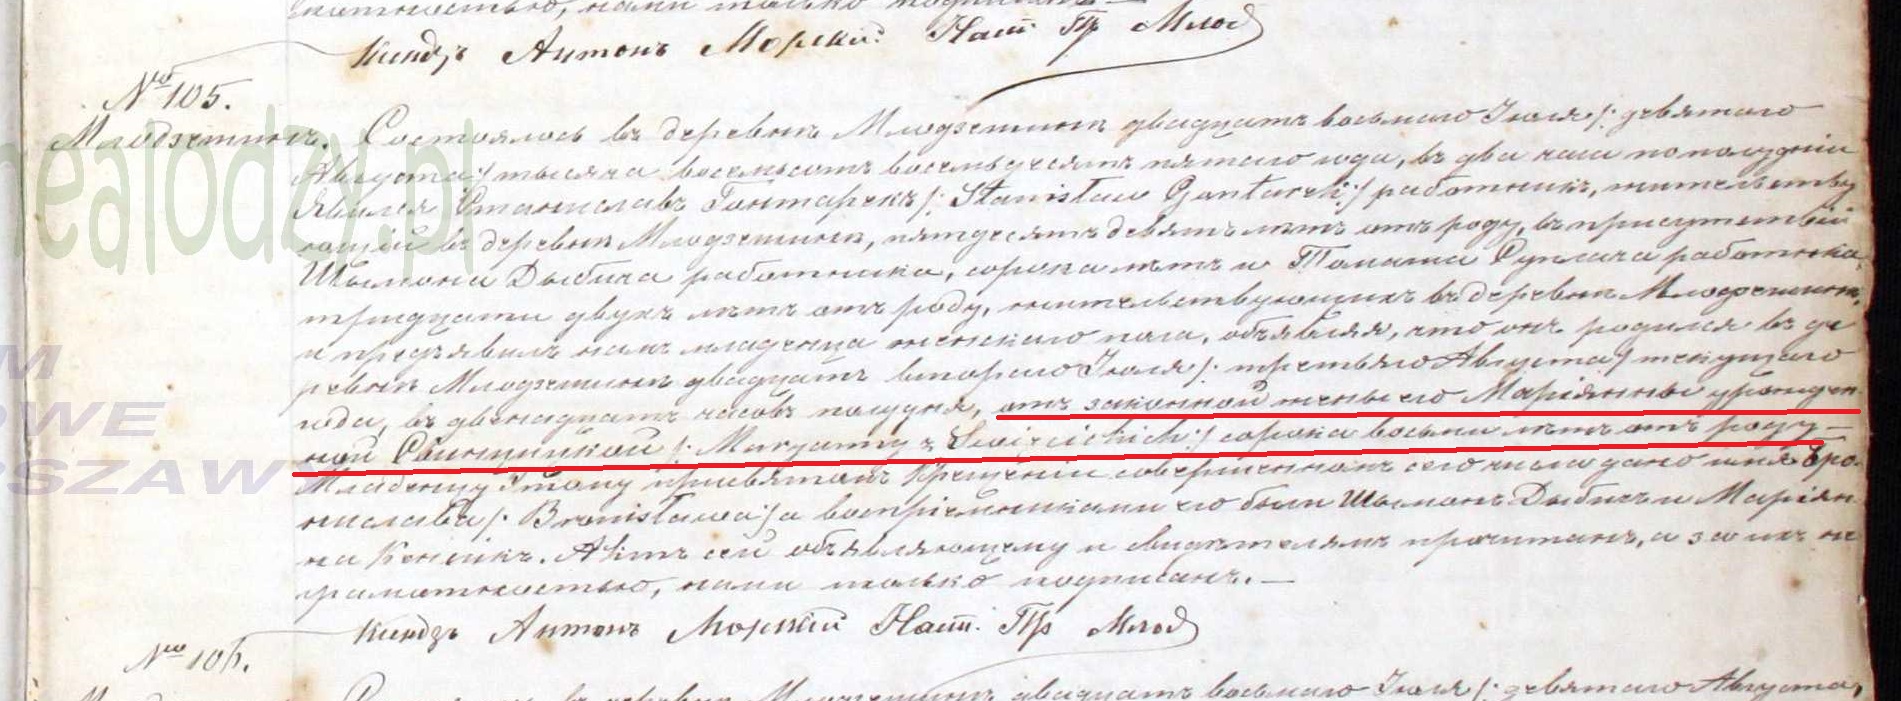 нами только
Ксендзъ Антонъ Морскій Наст Пр Млод
№ 105.
Млодзешинъ. Состоялось въ деревнѣ Млодзешинѣ двадцать восьмаго Іюля /: девятаго
Августа :/ тысяча восемьсотъ восемьдесятъ пятаго года, въ два часа по полудни
Явился Станиславъ Гонтарекъ /: Stanisław Gontarek :/ работникъ, жительству
ющій въ деревнѣ Млодзешинѣ, пятдесятъ девять лѣтъ отъ роду, въ присутствіи
Шымона Дыбича работника, сорока лѣтъ и Томаша работника
тридцати двухъ лѣтъ отъ роду, жительствующихъ въ деревнѣ Млодзешинѣ,
и предъявилъ намъ младенца женскаго пола, объявляя, что онъ родился въ де
ревнѣ Млодзешинѣ двадцать втораго Іюля /: третьяго Августа :/ текущаго
года, въ двенадцать часовъ полудня, отъ законной жены его Маріянны урожден
ной /: Maryanny z :/ сорока восьми лѣтъ отъ роду —
Младенцу этому при святомъ Крещеніи совершенномъ сего числа дано имя Бро
нислава /: Bronisława :/ а воспріемниками его были Шымонъ Дыбичъ и Маріян
на Актъ сей объявляющему и свидѣтелямъ прочитанъ, а за ихъ не
грамотностью, нами только подписанъ. —
Ксендзъ Антонъ Морскій Наст. Пр Млод
№ 106.
въ деревнѣ Млодзешинѣ двадцать восьмаго Іюля /: девятаго Августа,
nealodzy.pl
M
OWE
RSZAWY